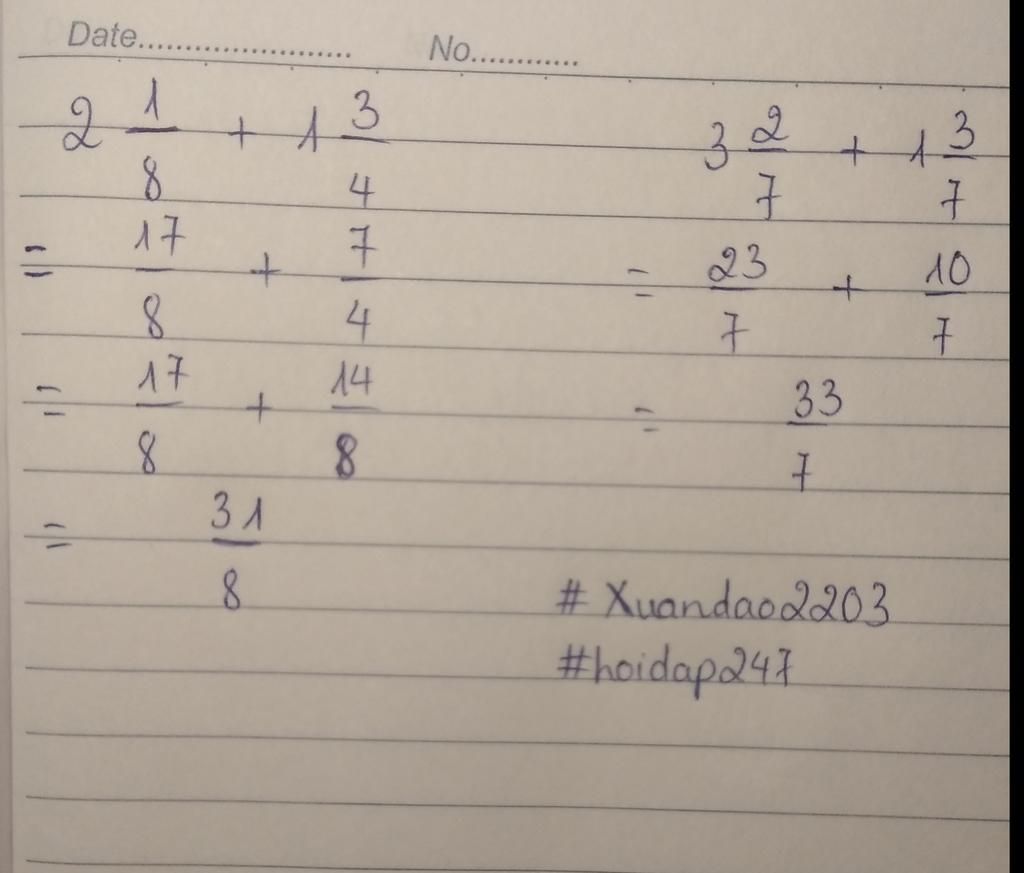 Date...................... No............
2 1/8 + 1 3/4
= 17/8 + 7/4
= 17/8 + 14/8
= 31/8
3 2/7 + 1 3/7
= 23/7 + 10/7
= 33/7
# Xuandao2203
#hoidap247